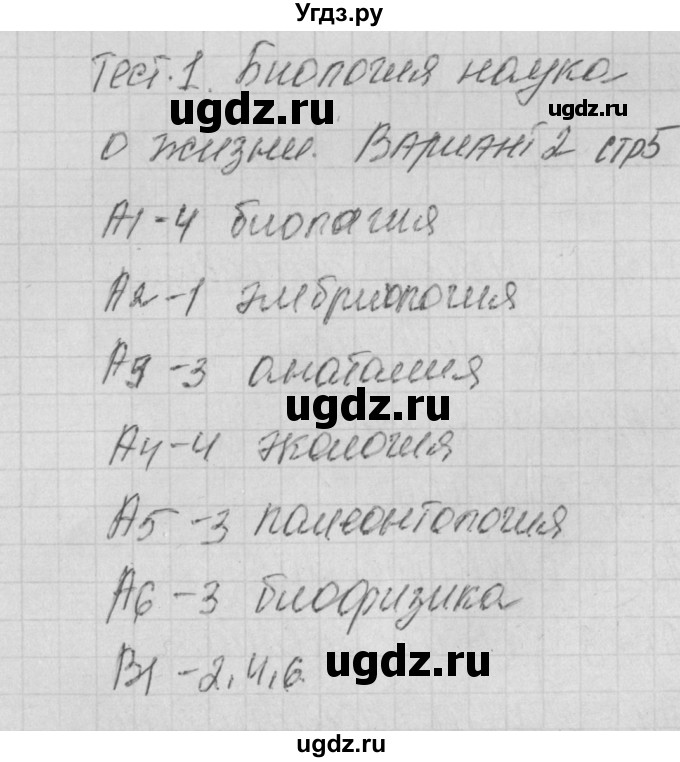 Угдз.ру
Тест.1. Биология наука
о жизни. Вариант 2 стр5
ugdz.ru
ugdz.ru
А1-4 биология
А2-1 эмбриология
А3-3 анатомия
ugdz.ru
А4-4 экология
А5-3 палеонтология
А6-3 биофизика
В1-2,4,6
ugdz.ru
ugdz.ru